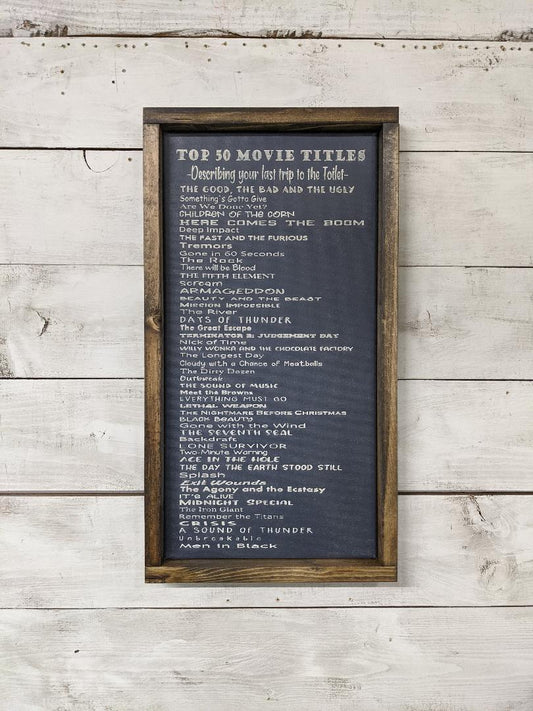 TOP 50 MOVIE TITLES
-Describing your last trip to the Toilet-
THE GOOD, THE BAD AND THE UGLY
Something's Gotta Give
Are We Done Yet?
CHILDREN OF THE CORN
HERE COMES THE BOOM
Deep Impact
THE FAST AND THE FURIOUS
Tremors
Gone in 60 Seconds
The Rock
There will be Blood
THE FIFTH ELEMENT
scream
ARMAGEDDON
BEAUTY AND THE BEAST
MISSION IMPOSSIBLE
The River
DAYS OF THUNDER
The Great Escape
TERMINATOR 2: JUDGEMENT DAY
Nick of Time
WILLY WONKA AND THE CHOCOLATE FACTORY
The Longest Day
Cloudy with a Chance of Meatballs
The Dirty Dozen
Outbreak
THE SOUND OF MUSIC
Meet the Browns
EVERYTHING MUST GO
LETHAL WEAPON
THE NIGHTMARE BEFORE CHRISTMAS
BLACK BEAUTY
Gone with the Wind
THE SEVENTH SEAL
Backdraft
LONE SURVIVOR
Two-Minute Warning
ACE IN THE HOLE
THE DAY THE EARTH STOOD STILL
Splash
Exit Wounds
The Agony and the Ecstasy
IT'S ALIVE
MIDNIGHT SPECIAL
The Iron Giant
Remember the Titans
CRISIS
A SOUND OF THUNDER
Unbreakable
Men in Black